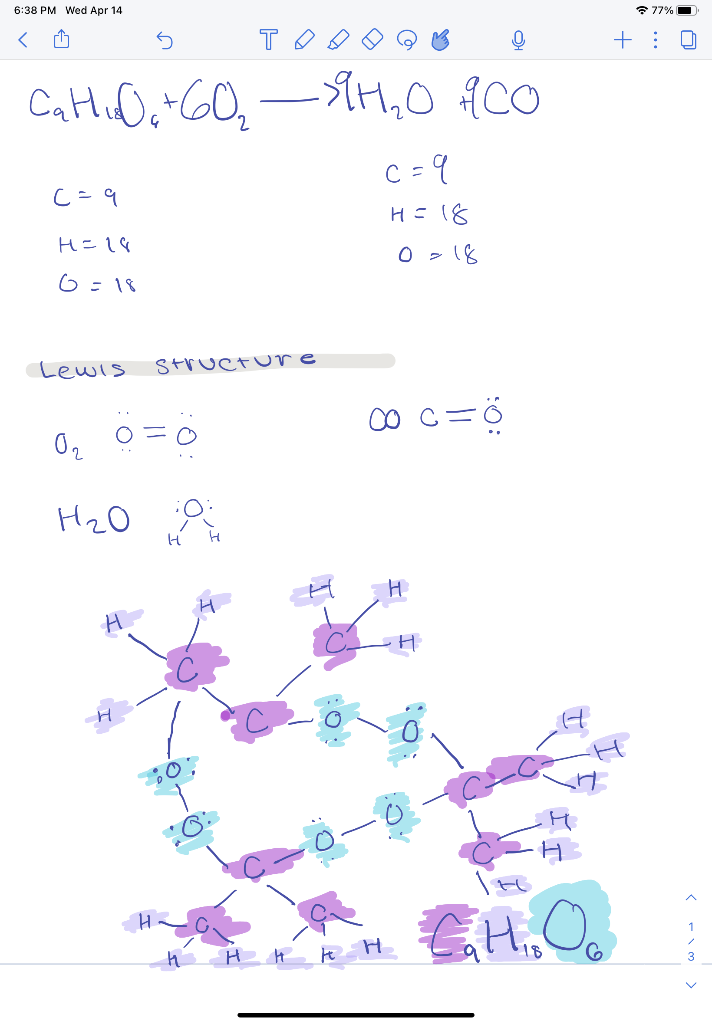 6:38 PM Wed Apr 14
77%
C₉H₁₈O₆ + 6O₂ → 9H₂O + 9CO
C = 9
H = 18
O = 18
C = 9
H = 18
O = 18
Lewis structure
O₂ O = O
CO C = O
H₂O O
H H
H H H H
H C C H
H C O O H
O C C H
O H
O O H
C C H
H C C H
H H H H H
C₉H₁₈O₆
1
3